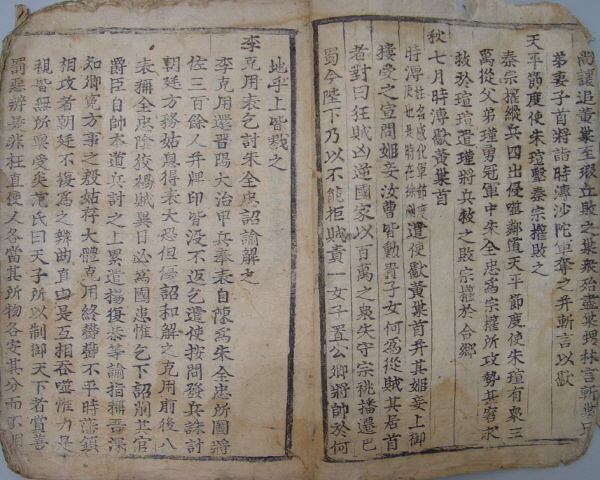 尚讓追黃巢至瑕丘敗之巢衆殆盡巢甥林言斬巢兄
弟妻子首將詣時溥沙陀軍奪之幷斬言以獻
天平節度使朱瑄擊秦宗權敗之
秦宗權縱兵四出侵噬鄰道天平節度使朱瑄有衆三
萬從父弟瑾勇冠軍中朱全忠爲宗權所攻勢甚窘求
救於瑄瑄遣瑾將兵救之敗宗權於合鄉
秋七月時溥獻黃巢首
時溥遣使獻黃巢首幷其姬妾上御
樓受之宣問姬妾汝曹皆勳貴子女何爲從賊其居首
者對曰狂賊凶逆國家以百萬之衆失守宗祧播遷巴
蜀今陛下乃以不能拒賊責一女子置公卿將帥於何
地乎上皆戮之
李克用表乞討朱全忠詔諭解之
李克用還晉陽大治甲兵奉表自陳爲朱全忠所圖將
佐三百餘人幷牌印皆没不返乞遣使按問發兵誅討
朝廷方務姑息得表大恐但優詔和解之克用前後八
表稱全忠陰狡禍賊異日必爲國患惟乞下詔削其官
爵臣自帥本道兵討之上累遣楊復恭等諭指稱吾深
知卿寃方事之殷姑存大體克用終鬱鬱不平時藩鎮
相攻者朝廷不復爲之辨曲直由是互相吞噬惟力是
視皆無所稟受矣范氏曰天子所以制御天下者賞善
罰惡辨是非枉直使人各當其所物各安其分而不相